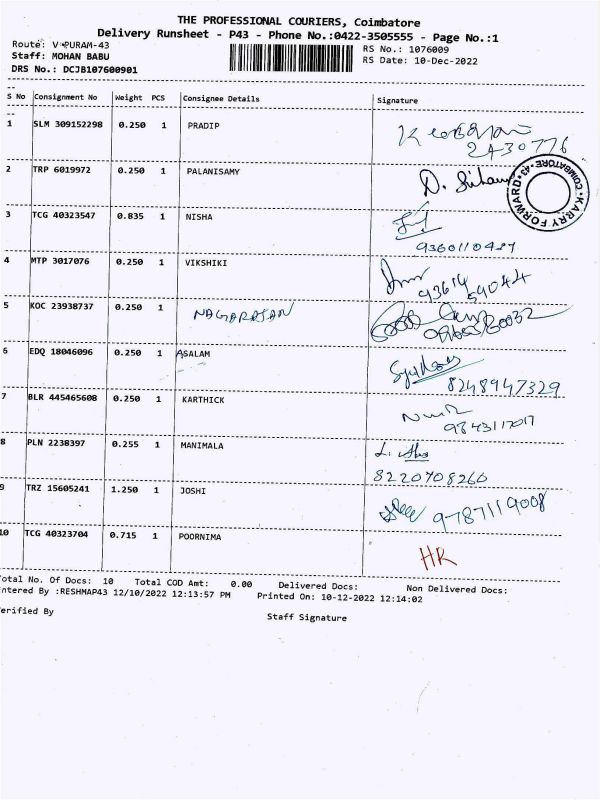 THE PROFESSIONAL COURIERS, Coimbatore
Delivery Runsheet - P43 - Phone No.:0422-3505555 - Page No.:1
Route: V PURAM-43
RS No.: 1076009
Staff: MOHAN BABU
RS Date: 10-Dec-2022
DRS No.: DCJB107600901
S No Consignment No Weight PCS Consignee Details Signature
1 SLM 309152298 0.250 1 PRADIP
2430776
2 TRP 6019972 0.250 1 PALANISAMY D.
KARRY FORWARD COIMBATORE-43
3 TCG 40323547 0.835 1 NISHA
9360110487
4 MTP 3017076 0.250 1 VIKSHIKI
93614
59044
5 KOC 23938737 0.250 1 NAGARAJAN
6 EDQ 18046096 0.250 1 ASALAM
8248947329
7 BLR 445465608 0.250 1 KARTHICK
9843117017
8 PLN 2238397 0.255 1 MANIMALA
8220708260
9 TRZ 15605241 1.250 1 JOSHI 9787119008
10 TCG 40323704 0.715 1 POORNIMA HR
Total No. Of Docs: 10 Total COD Amt: 0.00 Delivered Docs: Non Delivered Docs:
Entered By :RESHMAP43 12/10/2022 12:13:57 PM Printed On: 10-12-2022 12:14:02
Verified By
Staff Signature